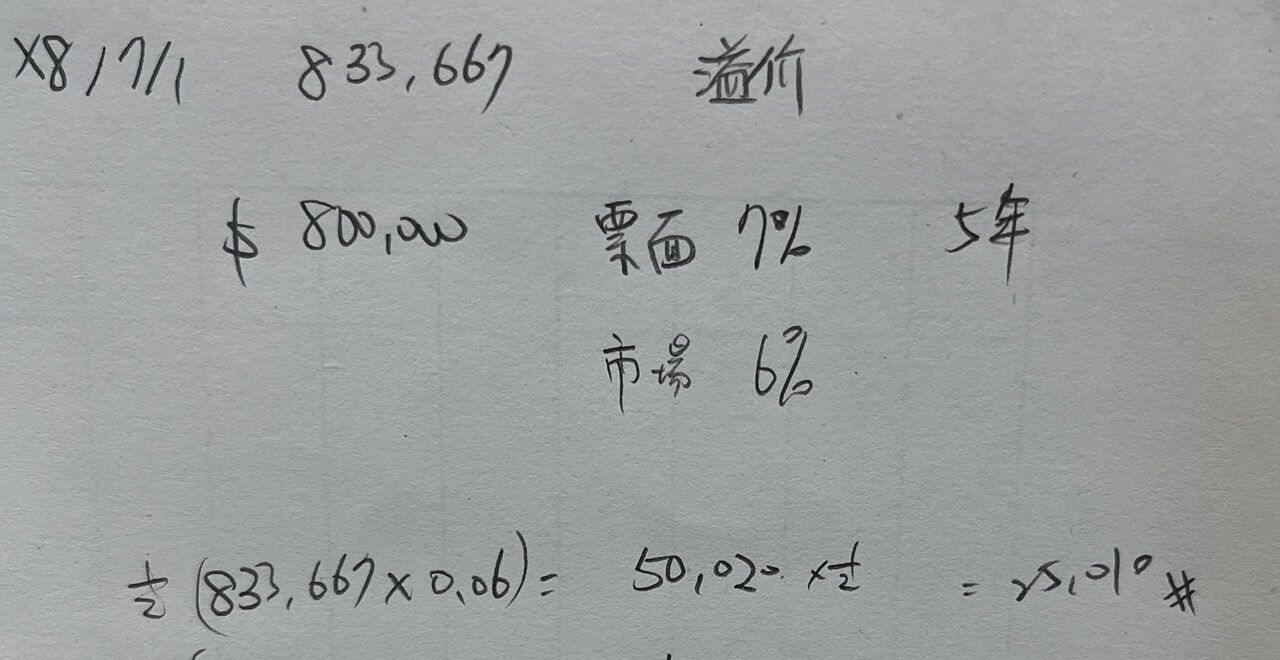 X8/7/1 833,667 溢价
$ 800,000 票面 7% 5年
市场 6%
½ (833,667 × 0.06) = 50,020 × ½ = 25,010 #